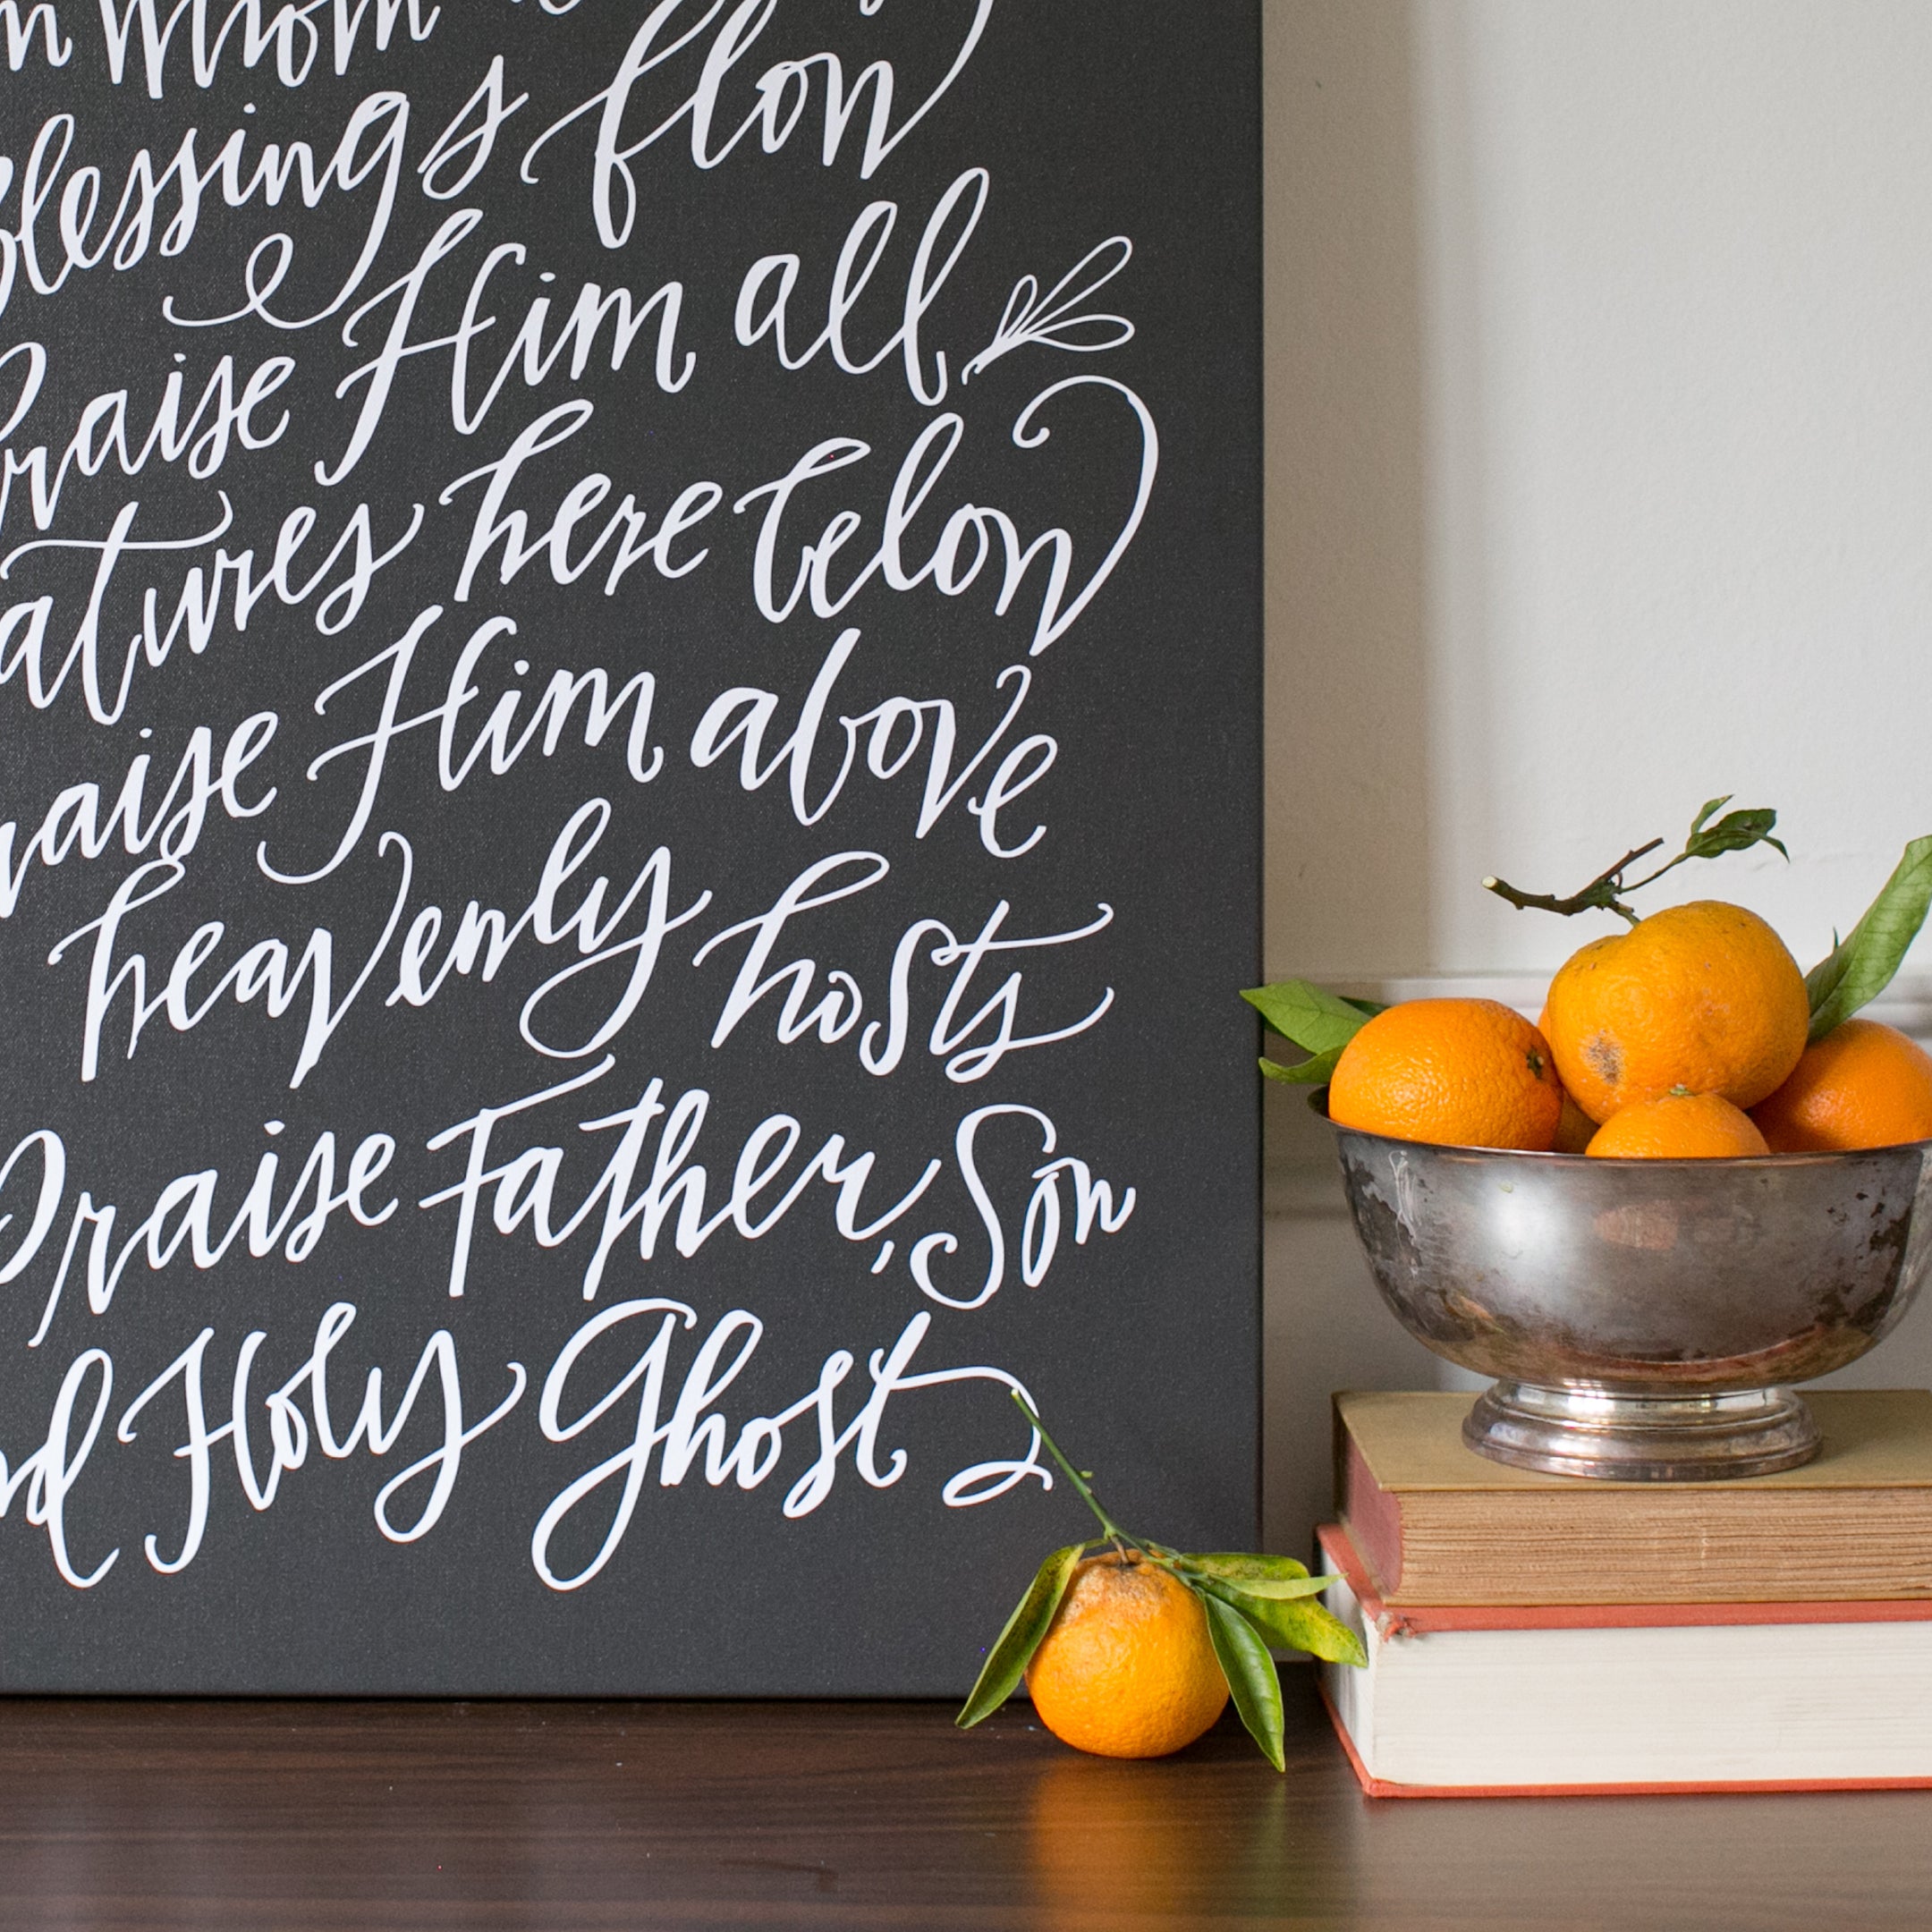 whom
blessings flow
Praise Him all
atures here below
raise Him above
heavenly hosts
Praise Father, Son
nd Holy Ghost